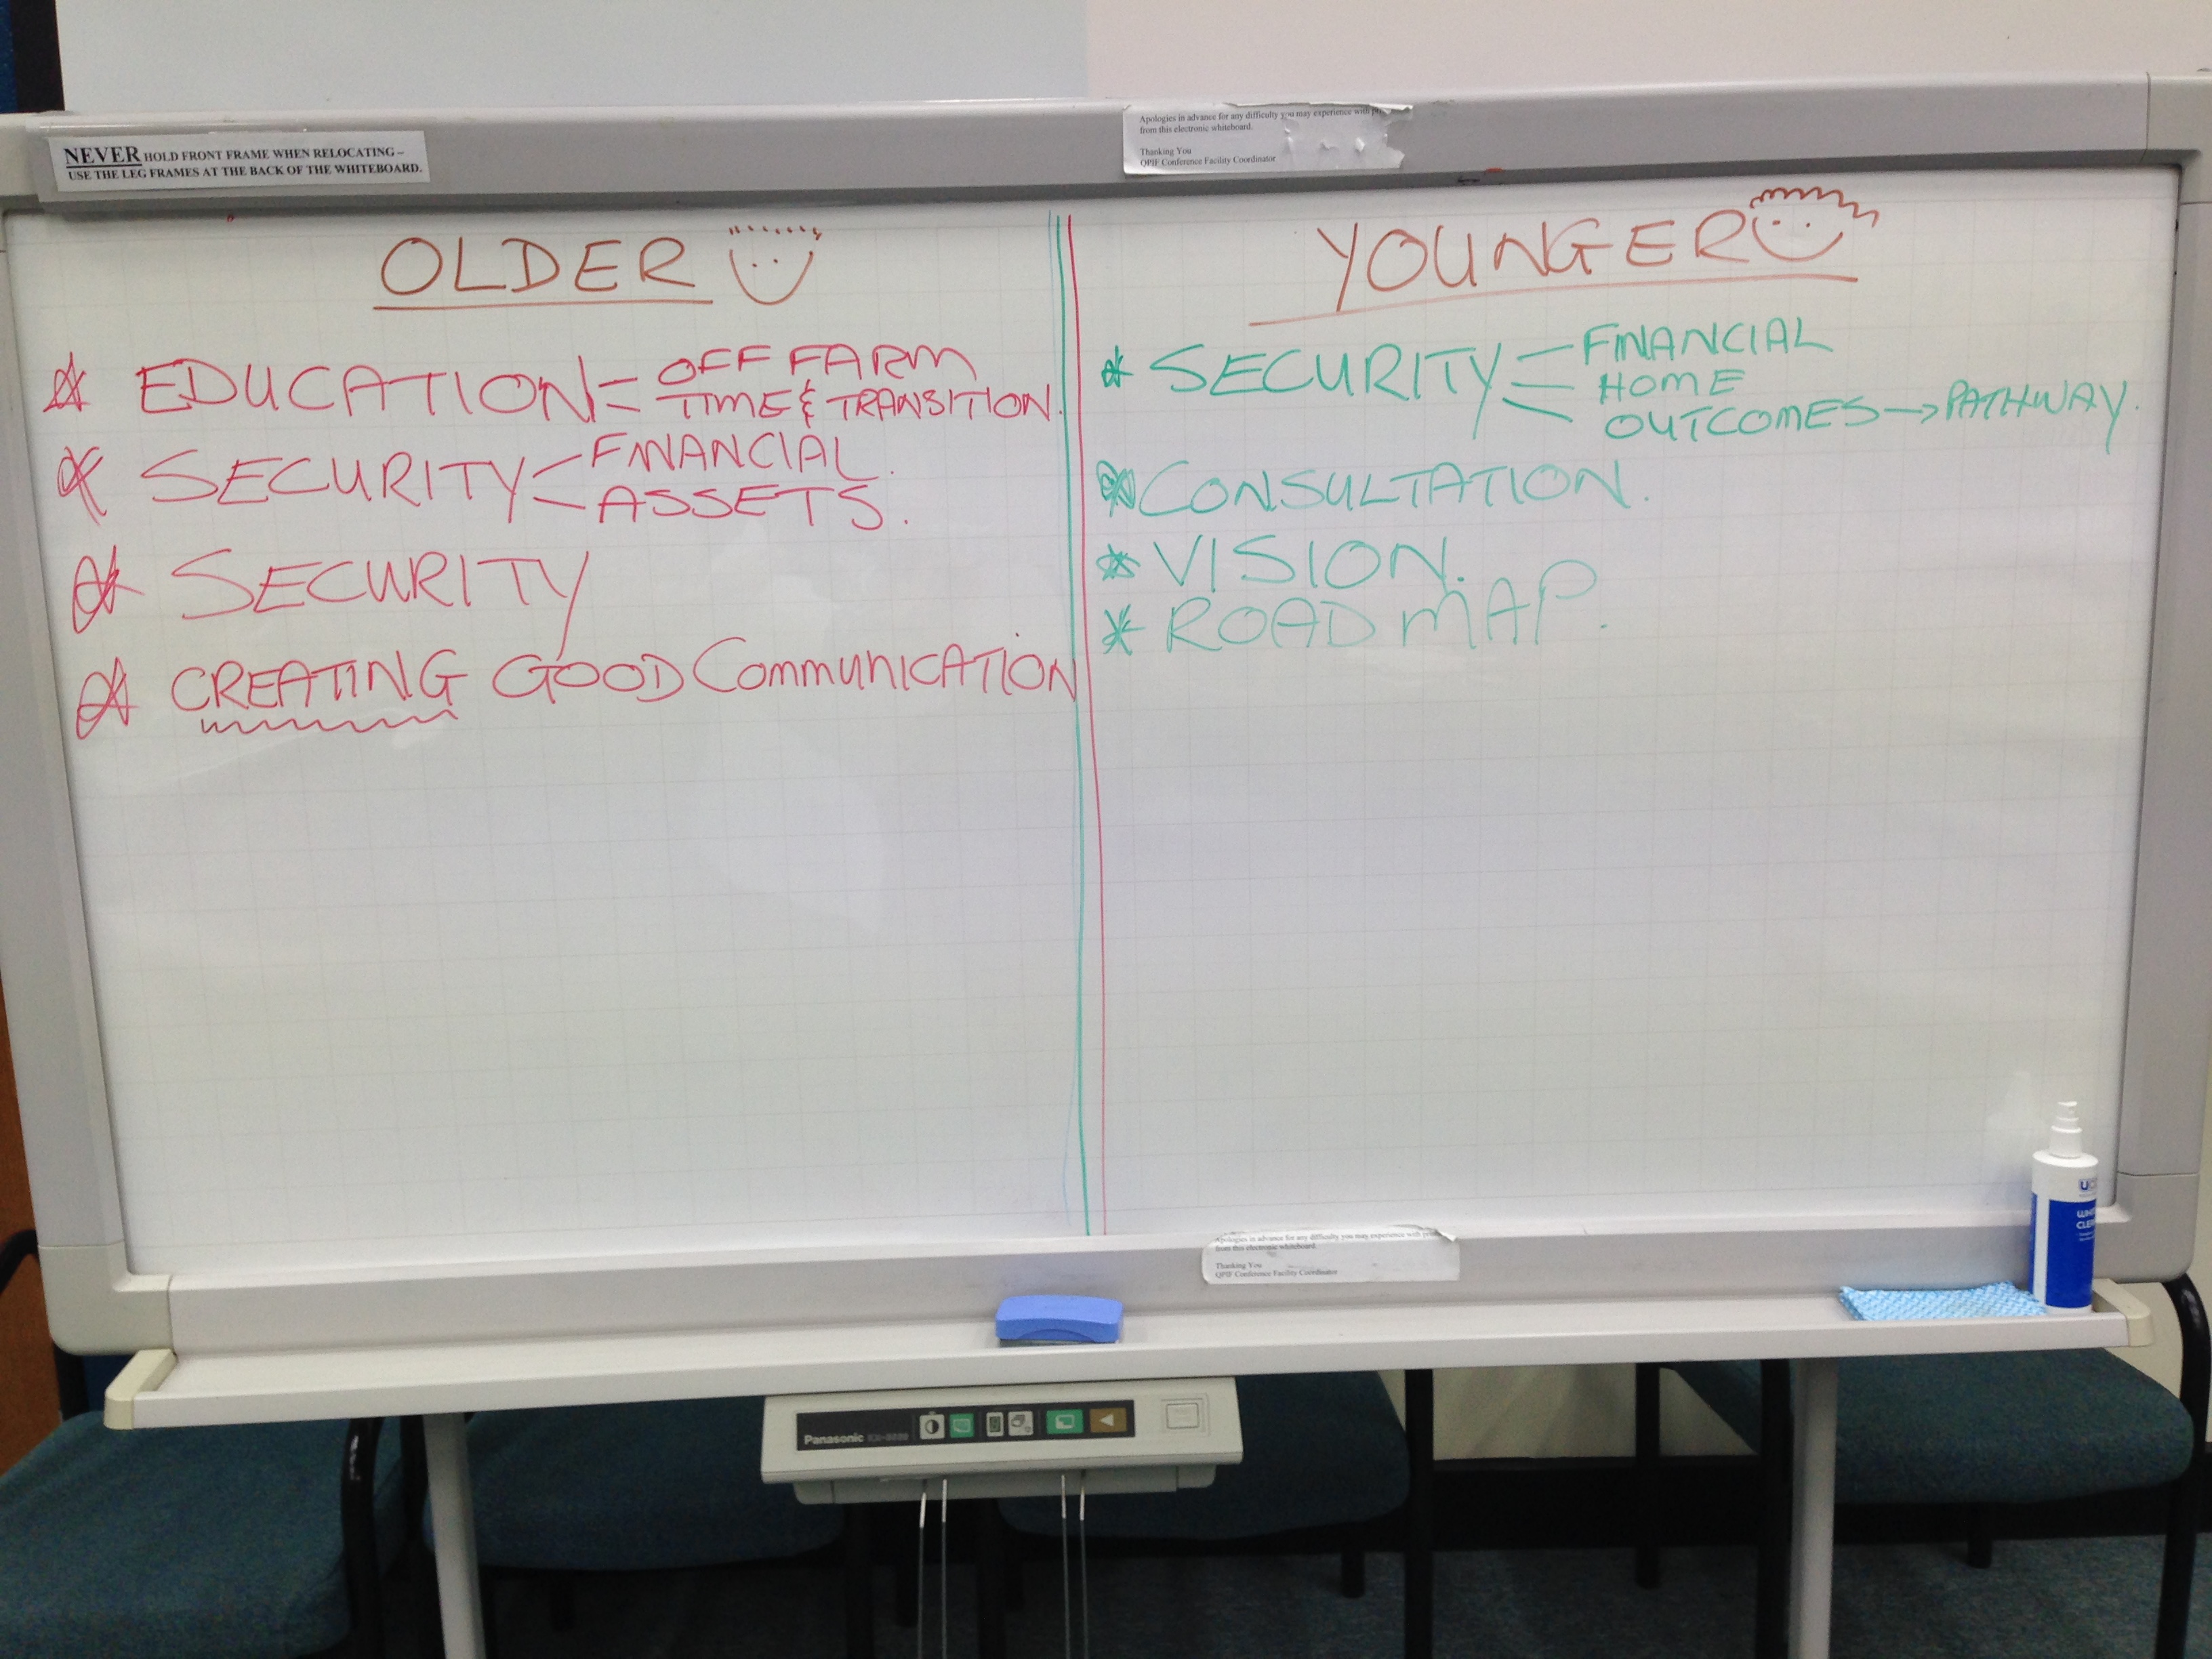 NEVER HOLD FRONT FRAME WHEN RELOCATING –
USE THE LEG FRAMES AT THE BACK OF THE WHITEBOARD.
Apologies in advance for any difficulty you may experience with
from this electronic whiteboard.
Thanking You
QPIF Conference Facility Coordinator
OLDER
EDUCATION OFF FARM
TIME & TRANSITION.
SECURITY FINANCIAL.
ASSETS.
SECURITY
CREATING GOOD COMMUNICATION
YOUNGER
SECURITY FINANCIAL
HOME
OUTCOMES → PATHWAY.
CONSULTATION.
VISION.
ROAD MAP.
Apologies in advance for any difficulty you may experience with
from this electronic whiteboard.
Thanking You
QPIF Conference Facility Coordinator
Panasonic